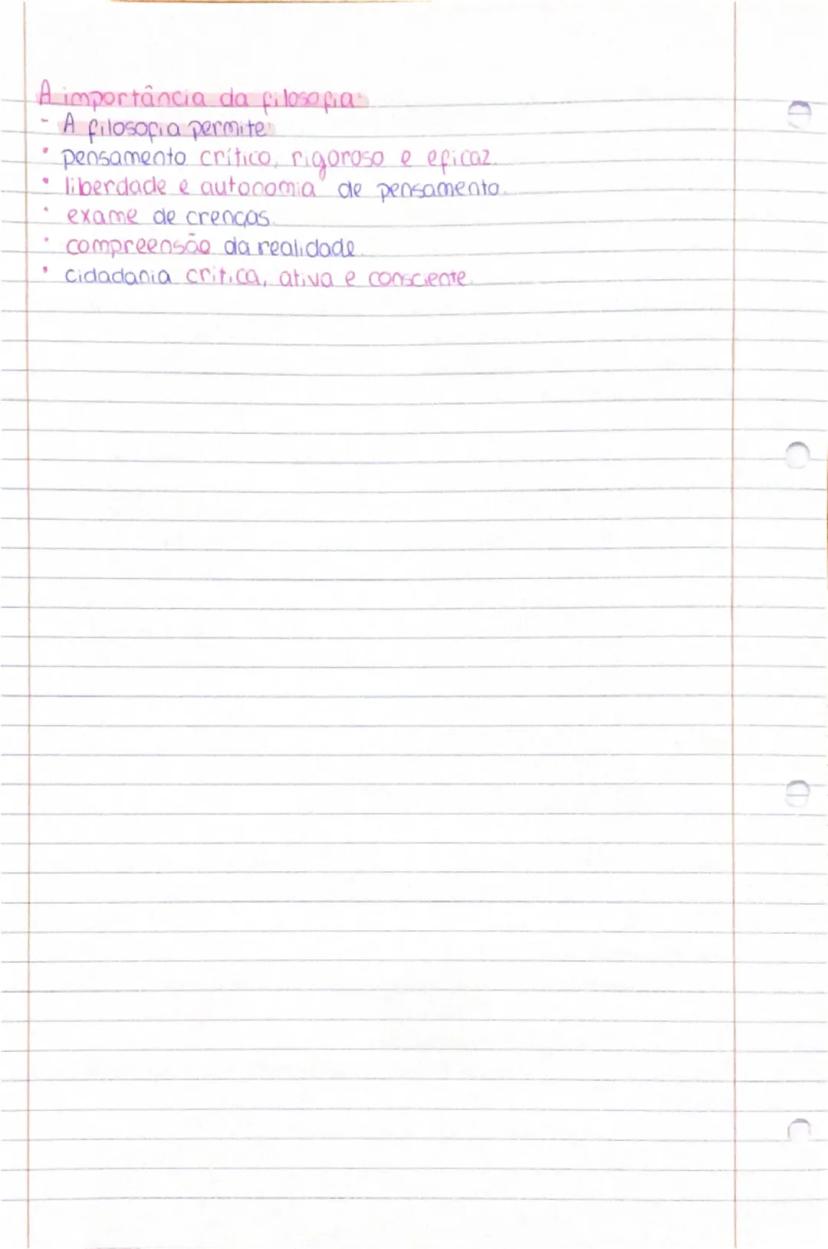 A importância da filosofia:
- A filosofia permite:
• pensamento crítico, rigoroso e eficaz.
• liberdade e autonomia de pensamento.
• exame de crenças.
• compreensão da realidade.
• cidadania critica, ativa e consciente.